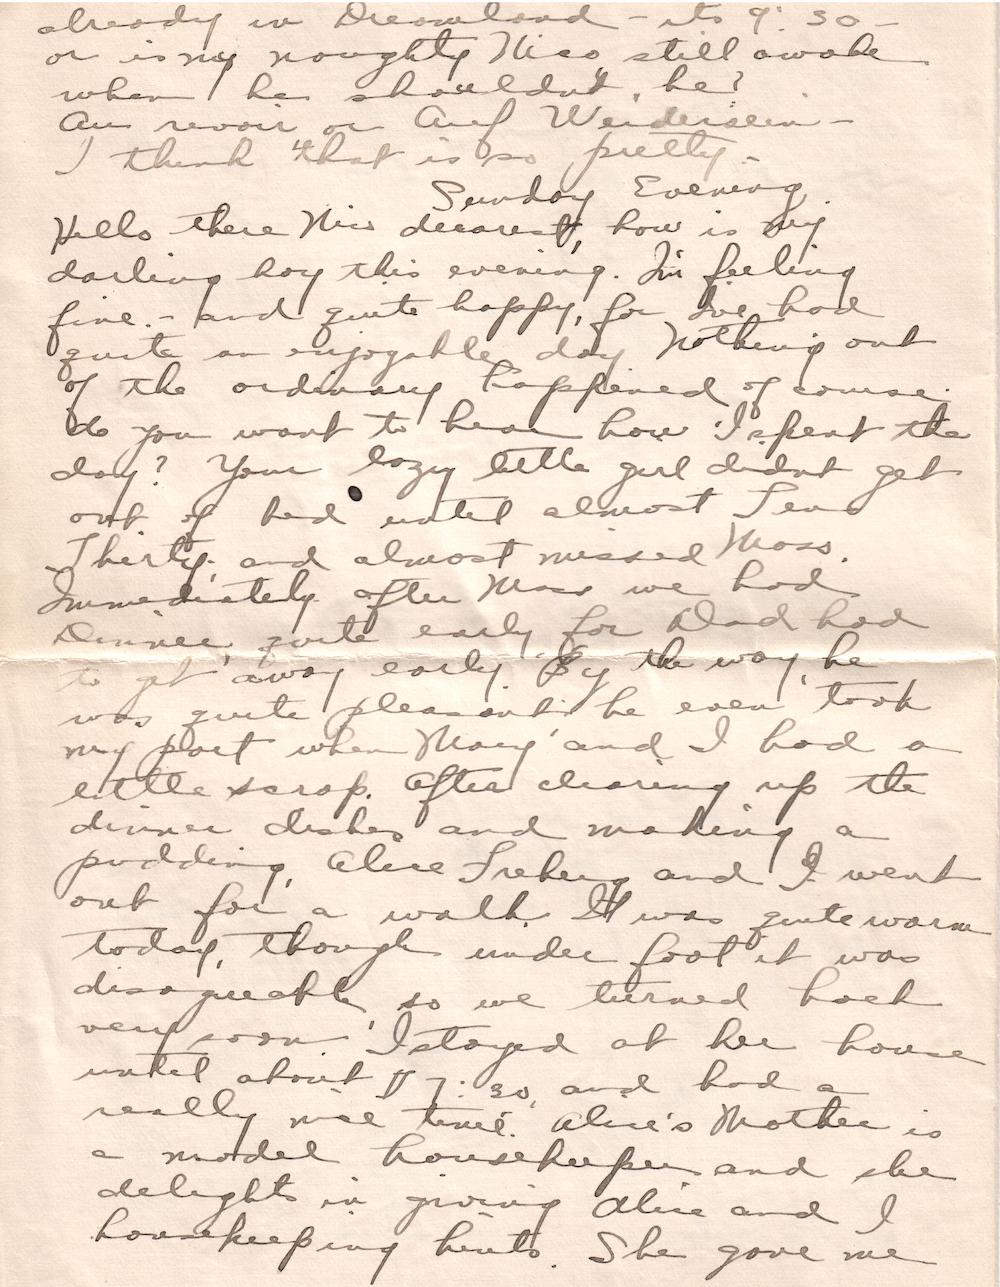 already in Dreamland - its 9:30 -
or is my noughty Nico still awake
when he shouldn't be?
Au revoir or Auf Weidersein -
I think that is so pretty -
Sunday Evening
Hello there Nico dearest, how is my
darling boy this evening. I'm feeling
fine. - and quite happy, for I've had
quite an enjoyable day Nothing out
of the ordinary happened of course.
do you want to hear how I spent the
day? Your lazy little girl didnt get
out of bed until almost Ten
Thirty, and almost missed Mass.
Immediately after Mass we had
Dinner quite early for Dad had
to get away early By the way, he
was quite pleasant. he even took
my part when Mary and I had a
little scrap. After clearing up the
dinner dishes and making a
pudding, Alice and I went
out for a walk. It was quite warm
today, though under foot it was
disagreeable so we turned back
very soon I stayed at her house
until about 7:30, and had a
really nice time. Alice's Mother is
a model housekeeper and she
delights in giving Alice and I
housekeeping hints. She gave me